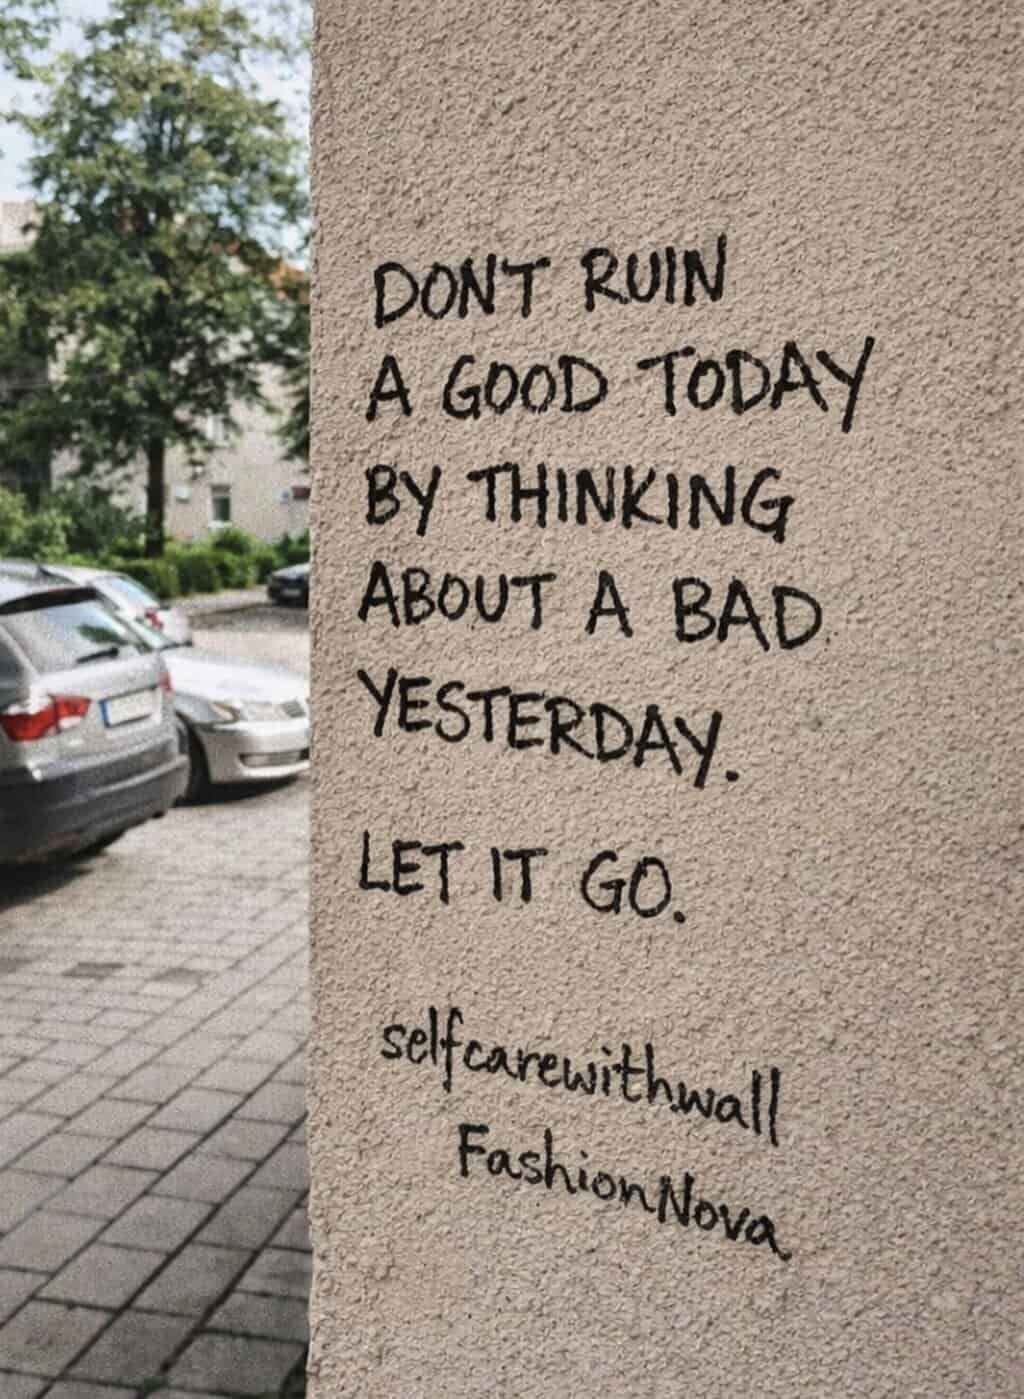 DON'T RUIN
A GOOD TODAY
BY THINKING
ABOUT A BAD
YESTERDAY.
LET IT GO.
selfcarewithwall
FashionNova